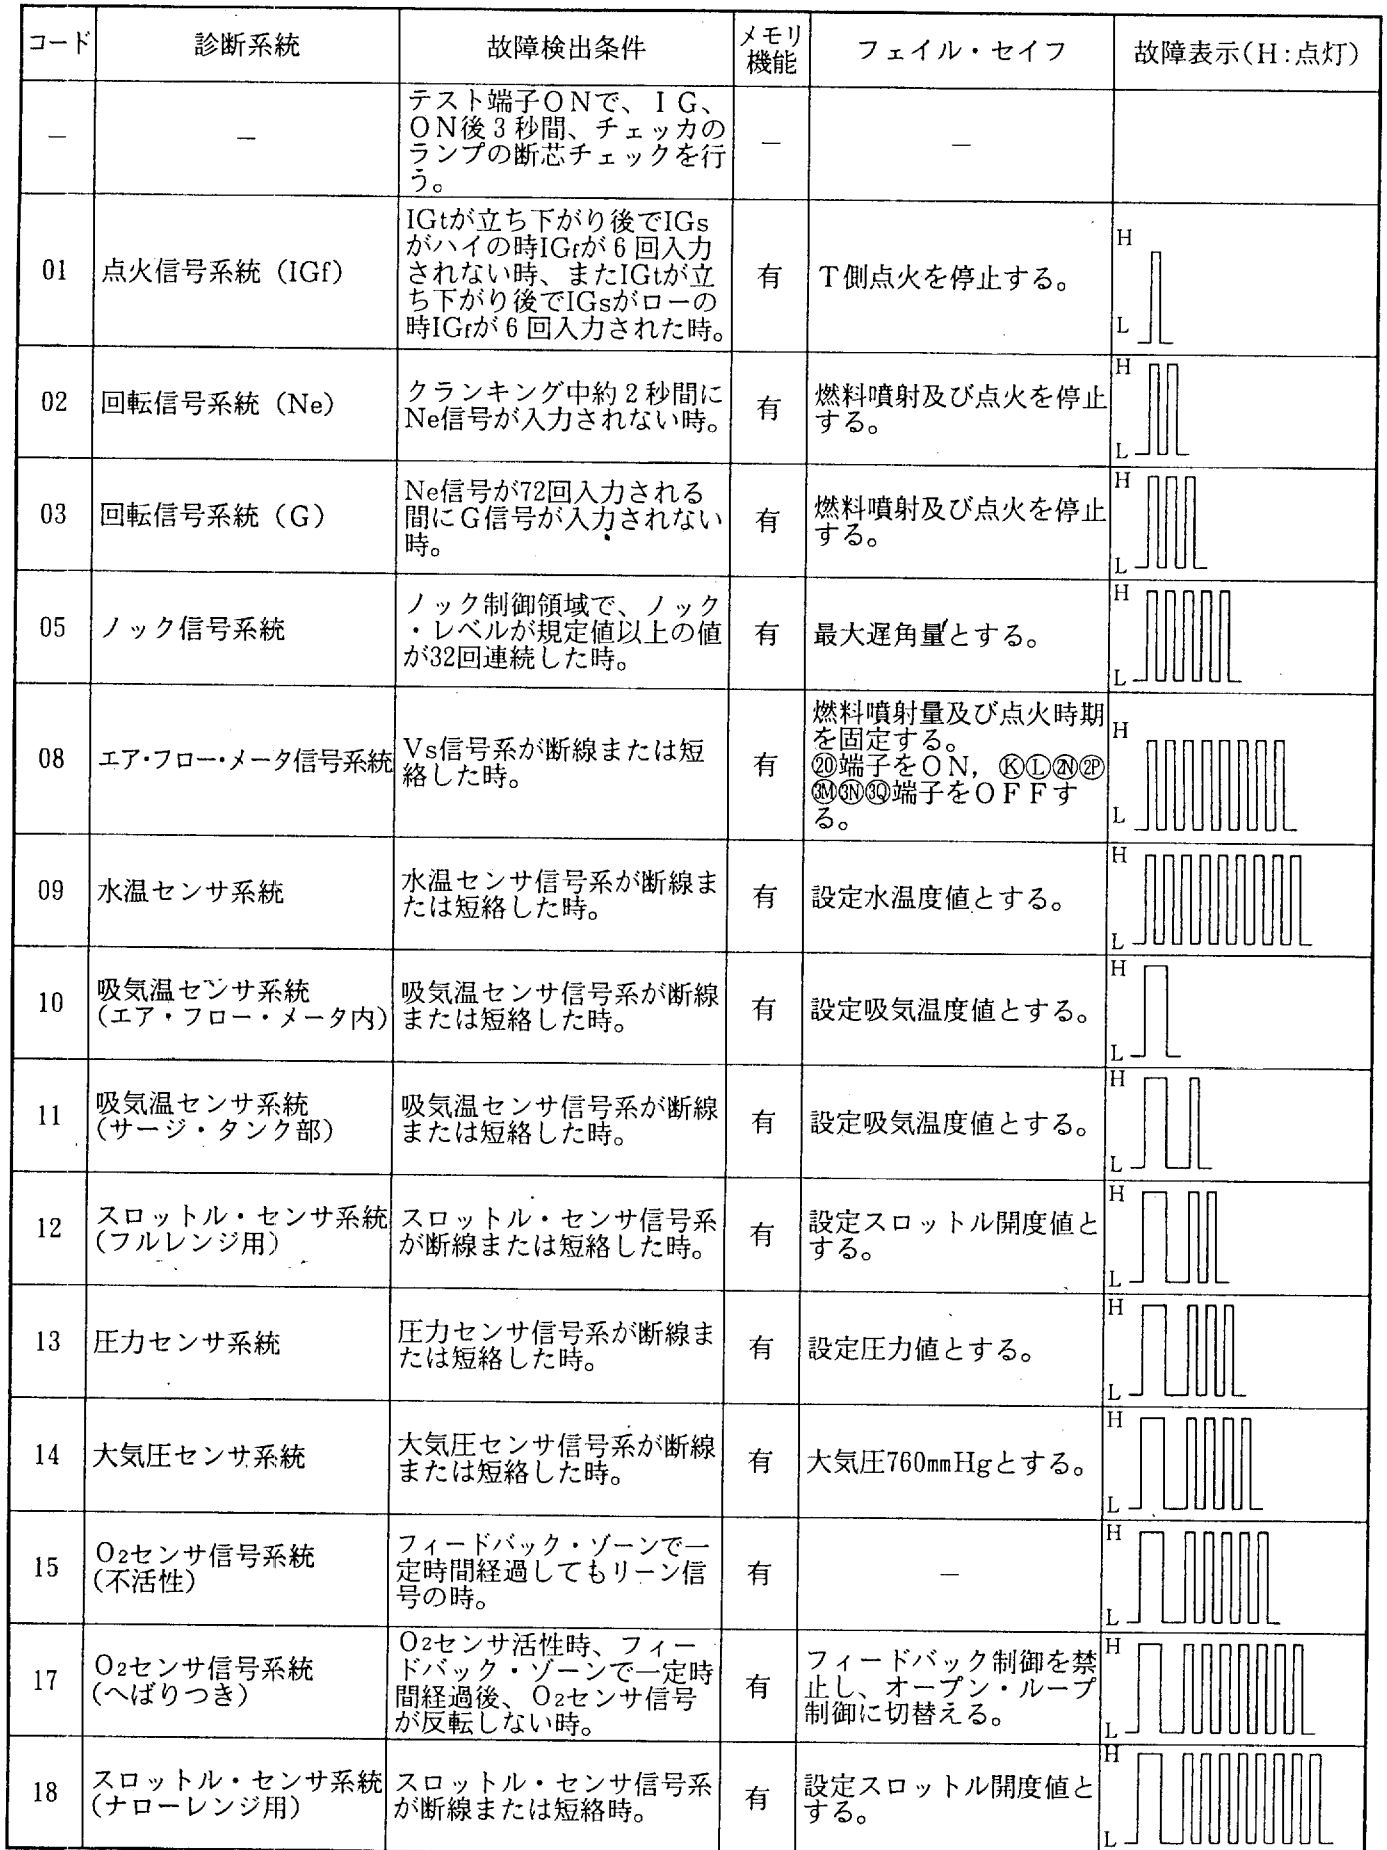 コード
診断系統
故障検出条件
メモリ
機能
フェイル・セイフ
故障表示(H:点灯)
－
－
テスト端子ONで、IG、
ON後3秒間、チェッカの
ランプの断芯チェックを行
う。
－
－
01
点火信号系統（IGf）
IGtが立ち下がり後でIGs
がハイの時IGfが6回入力
されない時、またIGtが立
ち下がり後でIGsがローの
時IGfが6回入力された時。
有
T側点火を停止する。
H
L
02
回転信号系統（Ne）
クランキング中約2秒間に
Ne信号が入力されない時。
有
燃料噴射及び点火を停止
する。
H
L
03
回転信号系統（G）
Ne信号が72回入力される
間にG信号が入力されない
時。
有
燃料噴射及び点火を停止
する。
H
L
05
ノック信号系統
ノック制御領域で、ノック
・レベルが規定値以上の値
が32回連続した時。
有
最大遅角量とする。
H
L
08
エア・フロー・メータ信号系統
Vs信号系が断線または短
絡した時。
有
燃料噴射量及び点火時期
を固定する。
⑳端子をON，ⓀⓁ2N2P
3M3N3Q端子をOFFす
る。
H
L
09
水温センサ系統
水温センサ信号系が断線ま
たは短絡した時。
有
設定水温度値とする。
H
L
10
吸気温センサ系統
(エア・フロー・メータ内)
吸気温センサ信号系が断線
または短絡した時。
有
設定吸気温度値とする。
H
L
11
吸気温センサ系統
(サージ・タンク部)
吸気温センサ信号系が断線
または短絡した時。
有
設定吸気温度値とする。
H
L
12
スロットル・センサ系統
(フルレンジ用)
スロットル・センサ信号系
が断線または短絡した時。
有
設定スロットル開度値と
する。
H
L
13
圧力センサ系統
圧力センサ信号系が断線ま
たは短絡した時。
有
設定圧力値とする。
H
L
14
大気圧センサ系統
大気圧センサ信号系が断線
または短絡した時。
有
大気圧760mmHgとする。
H
L
15
O2センサ信号系統
(不活性)
フィードバック・ゾーンで一
定時間経過してもリーン信
号の時。
有
－
H
L
17
O2センサ信号系統
(へばりつき)
O2センサ活性時、フィー
ドバック・ゾーンで一定時
間経過後、O2センサ信号
が反転しない時。
有
フィードバック制御を禁
止し、オープン・ループ
制御に切替える。
H
L
18
スロットル・センサ系統
(ナローレンジ用)
スロットル・センサ信号系
が断線または短絡時。
有
設定スロットル開度値と
する。
H
L